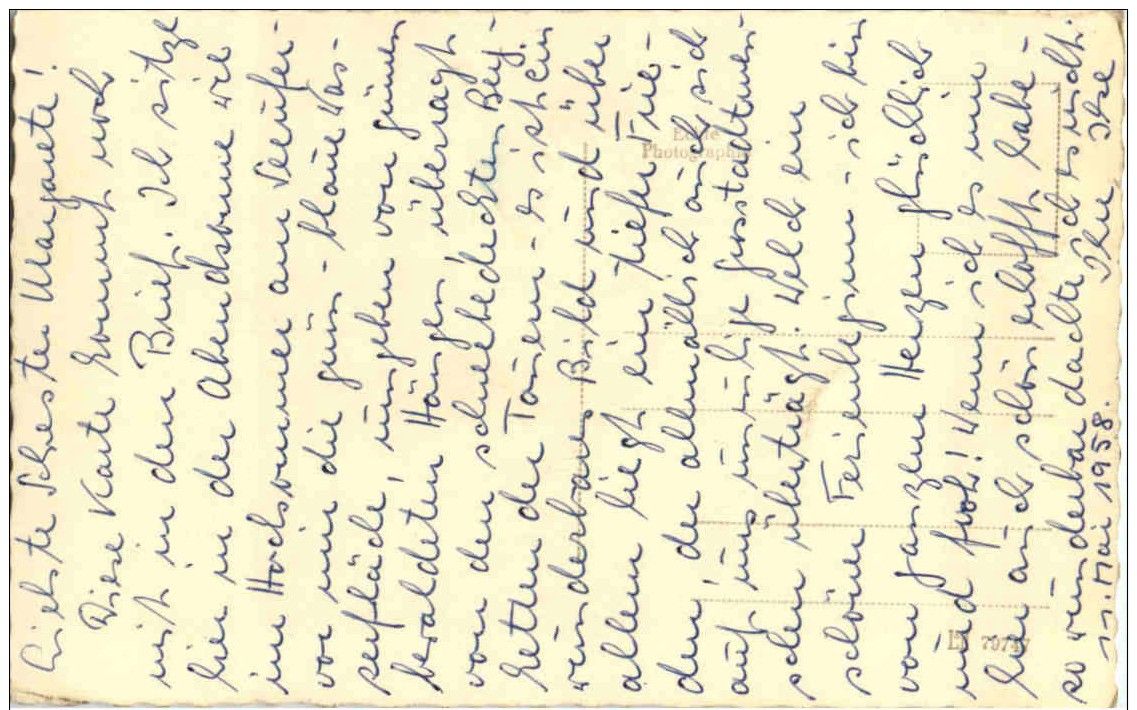 Liebste Schester Margarete!
Diese Karte kommt noch
mit in den Brief. Ich sitze
hier in der Abendsonne wie
im Hochsommer am Seeufer -
vor mir die grün - blaue Was-
serfläche, umgeben von grünen
bewaldeten Hängen, überragt
von den schneebedeckten Berg-
ketten der Tauern - es ist ein
wunderbares Bild und über
allem liegt ein tiefer Frie-
den, der allmählich auch sich
auf uns unruhige Grosstadtmen-
schen überträgt. Welch ein
schöner Ferienbeginn - ich bin
von ganzem Herzen glücklich
und froh! Wenn ich es mir
auch schön erhofft habe -
so wunderbar dachte ich es nicht.
11. Mai 1958. Ihre Ilse
Echte
Photographie
79747